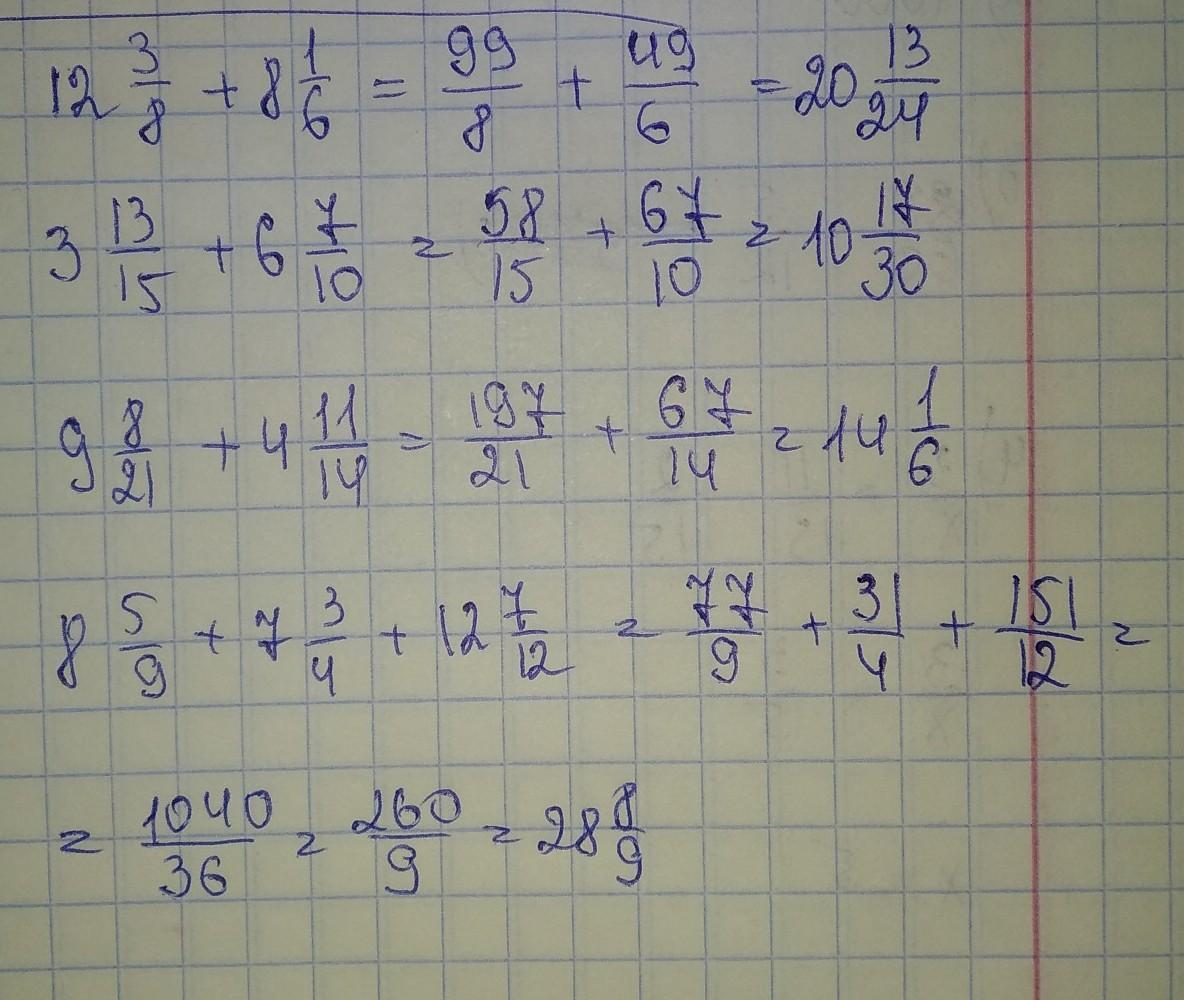 12 3/8 + 8 1/6 = 99/8 + 49/6 = 20 13/24
3 13/15 + 6 7/10 = 58/15 + 67/10 = 10 17/30
9 8/21 + 4 11/14 = 197/21 + 67/14 = 14 1/6
8 5/9 + 7 3/4 + 12 7/12 = 77/9 + 31/4 + 151/12 =
= 1040/36 = 260/9 = 28 8/9